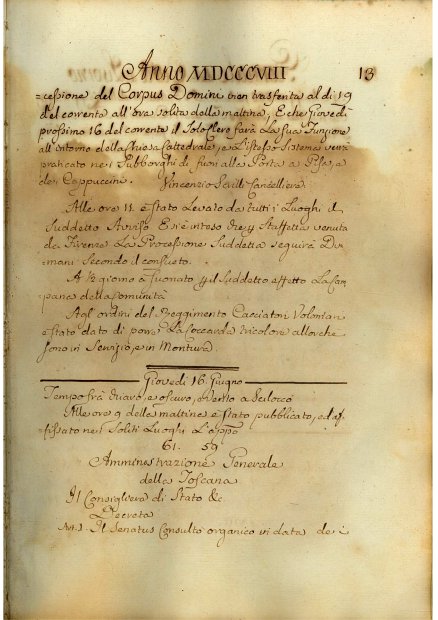 Anno MDCCCVIII 13
=cessione del Corpus Domini vien trasferita al dì 19
del corrente all'ora solita della mattina, E che Giovedì
prossimo 16 del corrente il Solo Clero farà La sua Funzione
all'intorno della Chiesa Cattedrale, e L'istesso Sistema verrà
praticato nei Subborghi di fuori alla Porta a Pisa, a
dei Cappuccini. Vincenzio Scilli Cancelliere
Alle ore 11. è Stato Levato da tutti i Luoghi il
Suddetto Avviso E si è inteso Staffetta venuta
da Firenze La Processione Suddetta seguirà Do=
mani Secondo il consueto.
A ½ giorno à Suonato il Suddetto effetto La Cam=
=pana della Comunità
Agl'ordini del Reggimento Cacciatori
è stato dato di porre La Coccarda tricolore allorchè
sono in Servizio, e in Montura.
Giovedì 16. Giugno
Tempo frà Vuaro, e oscuro, e Vento a Scilocco
Alle ore 9 della mattina è stato pubblicato, ed af=
fissato nei Soliti Luoghi L'app.o
61. 59
Amministrazione Generale
della Toscana
Il Consigliere di Stato &c.
Decreta
Art. 1. Il Senatus Consulto organico in data de i